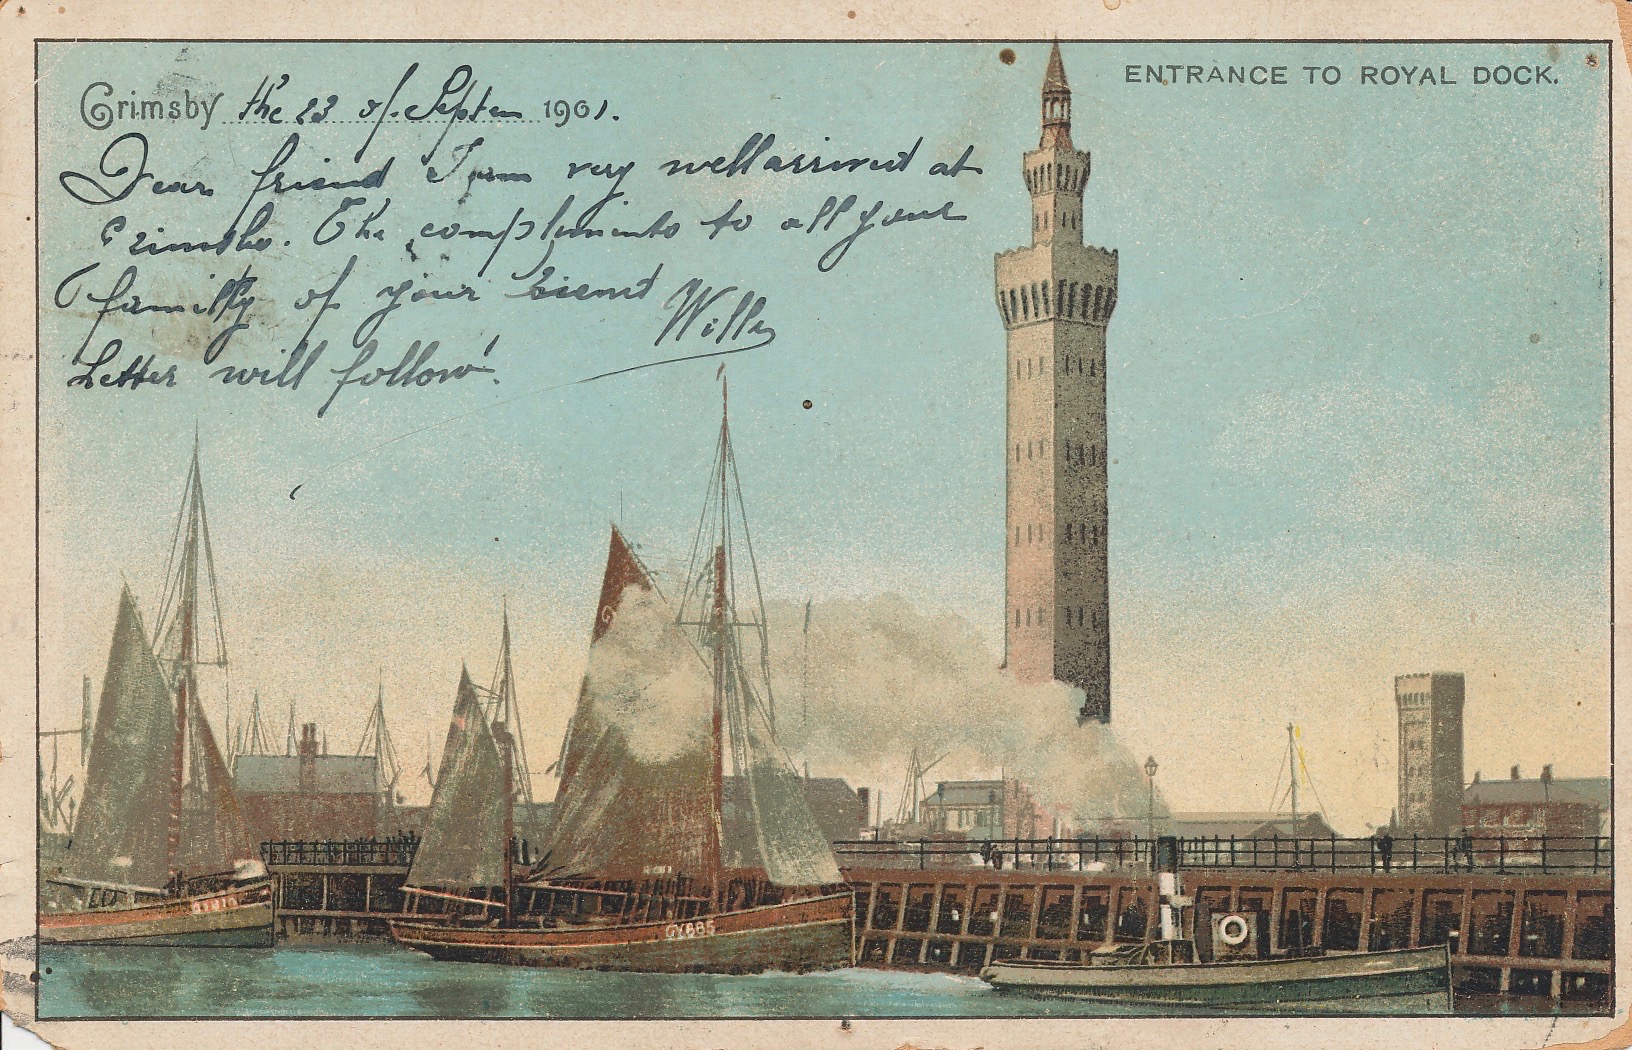 ENTRANCE TO ROYAL DOCK.
Grimsby the 23 of. Septem 1901.
Dear friend I am very well arrived at
Grimsby. The complements to all your
familly of your friend
Willy
Letter will follow!
GY885